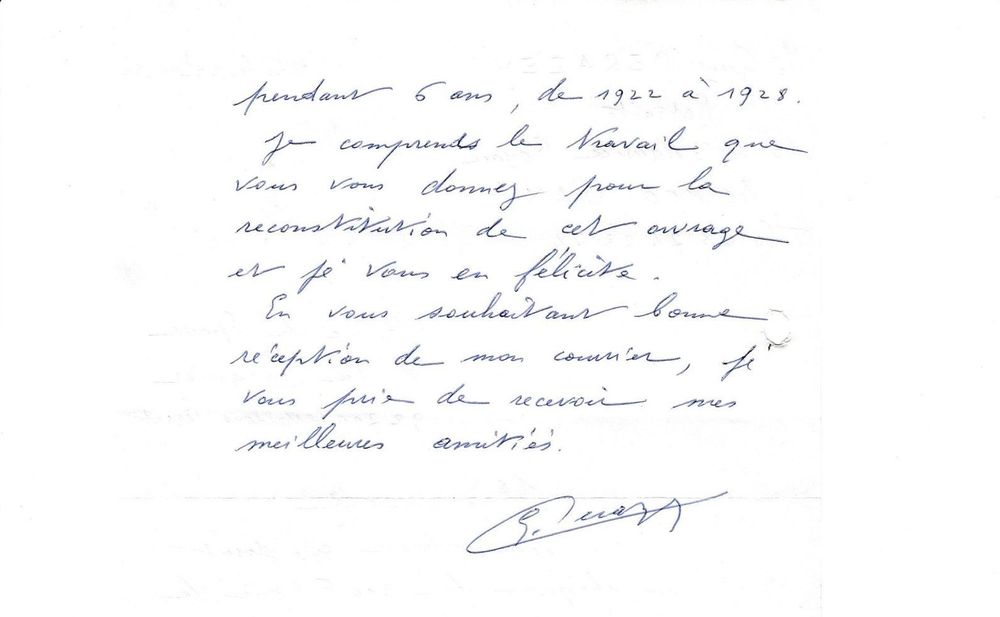 pendant 6 ans, de 1922 à 1928.
Je comprends le travail que
vous vous donnez pour la
reconstitution de cet ouvrage
et je vous en félicite.
En vous souhaitant bonne
réception de mon courrier, je
vous prie de recevoir mes
meilleures amitiés.